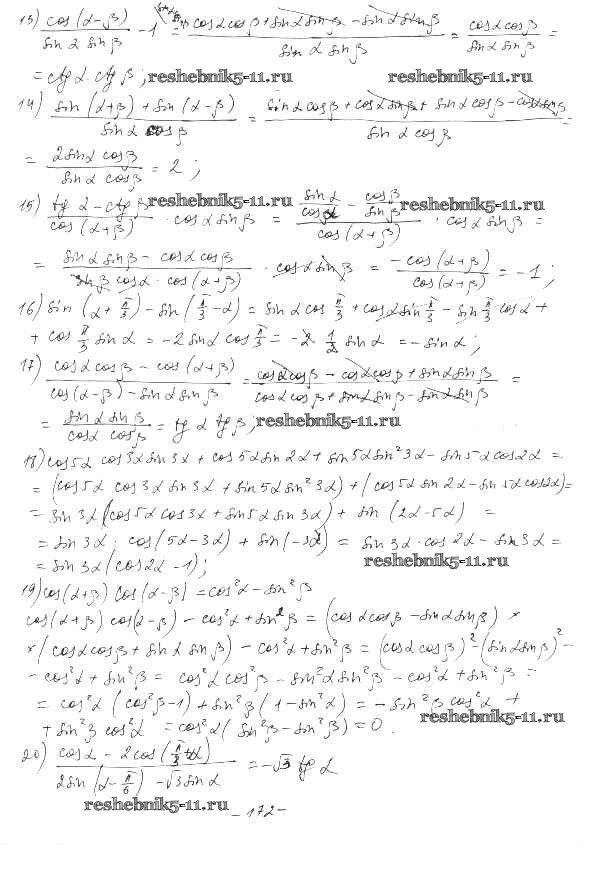 13) cos(α-β)/(sin α sin β) - 1 = (cos α cos β + sin α sin β - sin α sin β)/(sin α sin β) = (cos α cos β)/(sin α sin β) =
= ctg α · ctg β; reshebnik5-11.ru reshebnik5-11.ru
14) (sin(α+β) + sin(α-β))/(sin α cos β) = (sin α cos β + cos α sin β + sin α cos β - cos α sin β)/(sin α cos β) =
= (2 sin α cos β)/(sin α cos β) = 2;
reshebnik5-11.ru reshebnik5-11.ru
15) (tg α - ctg β)/(cos(α+β)) · cos α sin β = (sin α/cos α - cos β/sin β)/(cos(α+β)) · cos α sin β =
= (sin α sin β - cos α cos β)/(sin β cos α · cos(α+β)) · cos α sin β = (-cos(α+β))/(cos(α+β)) = -1;
16) sin(α + π/3) - sin(π/3 - α) = sin α cos π/3 + cos α sin π/3 - sin π/3 cos α +
+ cos π/3 sin α = -2 sin α cos π/3 = -2 · 1/2 sin α = -sin α;
17) (cos α cos β - cos(α+β))/(cos(α-β) - sin α sin β) = (cos α cos β - cos α cos β + sin α sin β)/(cos α cos β + sin α sin β - sin α sin β) =
= (sin α sin β)/(cos α cos β) = tg α tg β; reshebnik5-11.ru
18) cos 5α cos 3α sin 3α + cos 5α sin 2α + sin 5α sin² 3α - sin 5α cos 2α =
= (cos 5α cos 3α sin 3α + sin 5α sin² 3α) + (cos 5α sin 2α - sin 5α cos 2α) =
= sin 3α (cos 5α cos 3α + sin 5α sin 3α) + sin (2α - 5α) =
= sin 3α · cos(5α - 3α) + sin(-3α) = sin 3α · cos 2α - sin 3α =
= sin 3α (cos 2α - 1); reshebnik5-11.ru
19) cos(α+β) cos(α-β) = cos² α - sin² β
cos(α+β) cos(α-β) - cos² α + sin² β = (cos α cos β - sin α sin β) ×
× (cos α cos β + sin α sin β) - cos² α + sin² β = (cos α cos β)² - (sin α sin β)² -
- cos² α + sin² β = cos² α cos² β - sin² α sin² β - cos² α + sin² β =
= cos² α (cos² β - 1) + sin² β (1 - sin² α) = - sin² β cos² α +
+ sin² β cos² α = cos² α (sin² β - sin² β) = 0. reshebnik5-11.ru
20) (cos α - 2 cos(π/3 + α))/(2 sin(α - π/6) - √3 sin α) = -√3 tg α
reshebnik5-11.ru
- 172 -